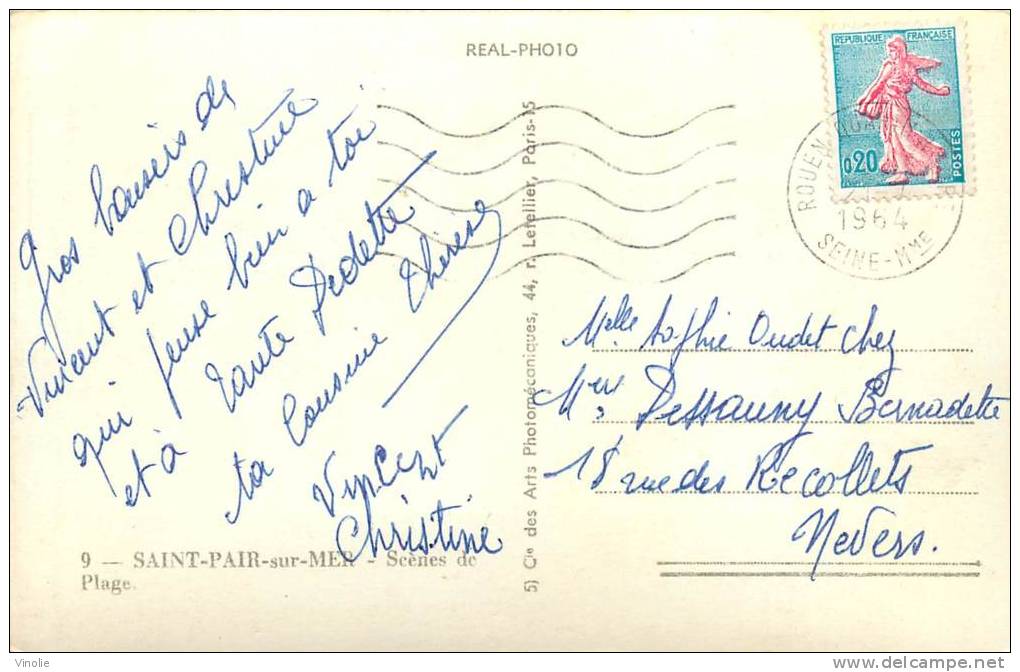 REAL-PHOTO
REPUBLIQUE FRANÇAISE
0,20
POSTES
ROUEN
1964
SEINE-Mme
Gros baisers de
Vincent et Christine
qui pense bien a toi
et à Tante Dedette
ta Cousine Thérèse
Vincent
Christine
9 — SAINT-PAIR-sur-MER - Scènes de
Plage.
5) Cie des Arts Photomécaniques, 44, r. Letellier, Paris-15
Melle Sophie Oudet Chez
Dessauny Bernadette
18 rue des Recollets
Nevers.
Vinolie
http://www.delcampe.net